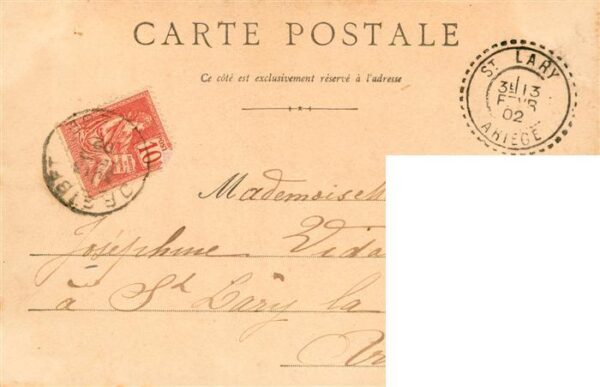 CARTE POSTALE
Ce côté est exclusivement réservé à l'adresse
ST LARY
3E/13
FEVR
02
ARIÈGE
10
POSTES
Mademoisell
Joséphine Vida
à St Lary la